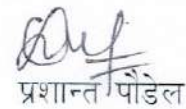 प्रशान्त पौडेल